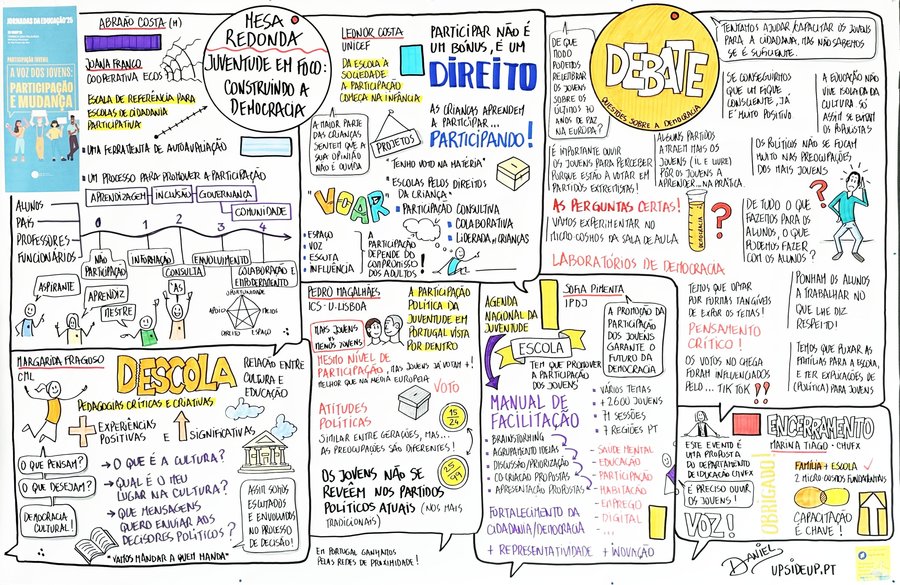 JORNADAS DA EDUCAÇÃO'25
PARTICIPAÇÃO JUVENIL
A VOZ DOS JOVENS:
PARTICIPAÇÃO
E MUDANÇA
ABRAÃO COSTA (M)
JOANA FRANCO
COOPERATIVA ECOS
ESCALA DE REFERÊNCIA PARA
ESCOLAS DE CIDADANIA
PARTICIPATIVA
UMA FERRAMENTA DE AUTOAVALIAÇÃO
UM PROCESSO PARA PROMOVER A PARTICIPAÇÃO
APRENDIZAGEM
INCLUSÃO
GOVERNANÇA
COMUNIDADE
ALUNOS
PAIS
PROFESSORES
FUNCIONÁRIOS
0 1 2 3 4
NÃO
PARTICIPAÇÃO
INFORMAÇÃO
CONSULTA
ENVOLVIMENTO
COLABORAÇÃO E
EMPODERAMENTO
ASPIRANTE
APRENDIZ
MESTRE
ÁS
OPORTUNIDADE
APOIO
MEIOS
DIREITO
ESPAÇO
MESA
REDONDA
JUVENTUDE EM FOCO:
CONSTRUINDO A
DEMOCRACIA
LEONOR COSTA
UNICEF
DA ESCOLA À
SOCIEDADE
A PARTICIPAÇÃO
COMEÇA NA INFÂNCIA
A MAIOR PARTE
DAS CRIANÇAS
SENTEM QUE A
SUA OPINIÃO
NÃO É OUVIDA
PROJETOS
PARTICIPAR NÃO É
UM BÓNUS, É UM
DIREITO
AS CRIANÇAS APRENDEM
A PARTICIPAR...
PARTICIPANDO!
"TENHO VOTO NA MATÉRIA"
"ESCOLAS PELOS DIREITOS
DA CRIANÇA"
PARTICIPAÇÃO CONSULTIVA
COLABORATIVA
LIDERADA P/ CRIANÇAS
"VOAR"
ESPAÇO
VOZ
ESCUTA
INFLUÊNCIA
A
PARTICIPAÇÃO
DEPENDE DO
COMPROMISSO
DOS ADULTOS!
DE QUE
MODO
PODEMOS
RELEMBRAR
OS JOVENS
SOBRE OS
ÚLTIMOS 70
ANOS DE PAZ
NA EUROPA?
DEBATE
QUESTÕES SOBRE A DEMOCRACIA
TENTAMOS AJUDAR/CAPACITAR OS JOVENS
PARA A CIDADANIA, MAS NÃO SABEMOS
SE É SUFICIENTE.
SE CONSEGUIRMOS
QUE UM FIQUE
CONSCIENTE, JÁ
É MUITO POSITIVO
A EDUCAÇÃO NÃO
VIVE ISOLADA DA
CULTURA SÓ
ASSIM SE EVITAM
OS POPULISTAS
É IMPORTANTE OUVIR
OS JOVENS PARA PERCEBER
PORQUE ESTÃO A VOTAR EM
PARTIDOS EXTREMISTAS!
ALGUNS PARTIDOS
ATRAEM MAIS OS
JOVENS (IL E LIVRE)
PÔR OS JOVENS A
APRENDER... NA PRÁTICA.
OS POLÍTICOS NÃO SE FOCAM
MUITO NAS PREOCUPAÇÕES
DOS MAIS JOVENS
AS PERGUNTAS CERTAS!
VAMOS EXPERIMENTAR NO
MICRO COSMOS DA SALA DE AULA
DEMOCRACIA
LABORATÓRIOS DE DEMOCRACIA
?
?
?
DE TUDO O QUE
FAZEMOS PARA OS
ALUNOS, O QUE
PODEMOS FAZER
COM OS ALUNOS?
TEMOS QUE OPTAR
POR FORMAS TANGÍVEIS
DE EXPOR OS TEMAS!
PENSAMENTO
CRÍTICO!
OS VOTOS NO CHEGA
FORAM INFLUENCIADOS
PELO... TIK TOK!!
PONHAM OS ALUNOS
A TRABALHAR NO
QUE LHE DIZ
RESPEITO!
TEMOS DE PUXAR AS
FAMÍLIAS PARA A ESCOLA,
E TER EXPLICAÇÕES DE
(POLÍTICA) PARA JOVENS
MARGARIDA FRAGOSO
CML
DESCOLA
PEDAGOGIAS CRÍTICAS E CRIATIVAS
RELAÇÃO ENTRE
CULTURA E
EDUCAÇÃO
EXPERIÊNCIAS
POSITIVAS E
SIGNIFICATIVAS
O QUE PENSAM?
O QUE DESEJAM?
DEMOCRACIA
CULTURAL!
O QUE É A CULTURA?
QUAL É O MEU
LUGAR NA CULTURA?
QUE MENSAGENS
QUERO ENVIAR AOS
DECISORES POLÍTICOS?
"VAMOS MANDAR A QUEM MANDA"
ASSIM SOMOS
ESCUTADOS
E ENVOLVIDOS
NO PROCESSO
DE DECISÃO!
PEDRO MAGALHÃES
ICS - U. LISBOA
A PARTICIPAÇÃO
POLÍTICA DA
JUVENTUDE EM
PORTUGAL VISTA
POR DENTRO
MAIS JOVENS
VS
MENOS JOVENS
MESMO NÍVEL DE
PARTICIPAÇÃO, MAS JOVENS JÁ VOTAM +!
MELHOR QUE NA MÉDIA EUROPEIA
VOTO
ATITUDES
POLÍTICAS
15
24
SIMILAR ENTRE GERAÇÕES, MAS...
AS PREOCUPAÇÕES SÃO DIFERENTES!
OS JOVENS NÃO SE
REVEEM NOS PARTIDOS
POLÍTICOS ATUAIS (NOS MAIS
TRADICIONAIS)
EM PORTUGAL GANHAMOS
PELAS REDES DE PROXIMIDADE!
SOFIA PIMENTA
IPDJ
AGENDA
NACIONAL DA
JUVENTUDE
ESCOLA
TEM QUE PROMOVER
A PARTICIPAÇÃO
DOS JOVENS
A PROMOÇÃO DA
PARTICIPAÇÃO
DOS JOVENS
GARANTE O
FUTURO DA
DEMOCRACIA
MANUAL DE
FACILITAÇÃO
BRAINSTORMING
AGRUPAMENTO IDEIAS
DISCUSSÃO/PRIORIZAÇÃO
CO-CRIAÇÃO PROPOSTAS
APRESENTAÇÃO PROPOSTAS
VÁRIOS TEMAS
+ 2600 JOVENS
71 SESSÕES
7 REGIÕES PT
SAÚDE MENTAL
EDUCAÇÃO
PARTICIPAÇÃO
HABITAÇÃO
EMPREGO
DIGITAL
...
FORTALECIMENTO DA
CIDADANIA/DEMOCRACIA
+ REPRESENTATIVIDADE + INOVAÇÃO
ENCERRAMENTO
MARINA TIAGO - CMVFX
ESTE EVENTO É
UMA PROPOSTA
DO DEPARTAMENTO
DE EDUCAÇÃO CMVFX
É PRECISO OUVIR
OS JOVENS!
VOZ!
OBRIGADO!
FAMÍLIA + ESCOLA
2 MICRO COSMOS FUNDAMENTAIS
CAPACITAÇÃO
É CHAVE!
DANIEL
UPSIDEUP.PT